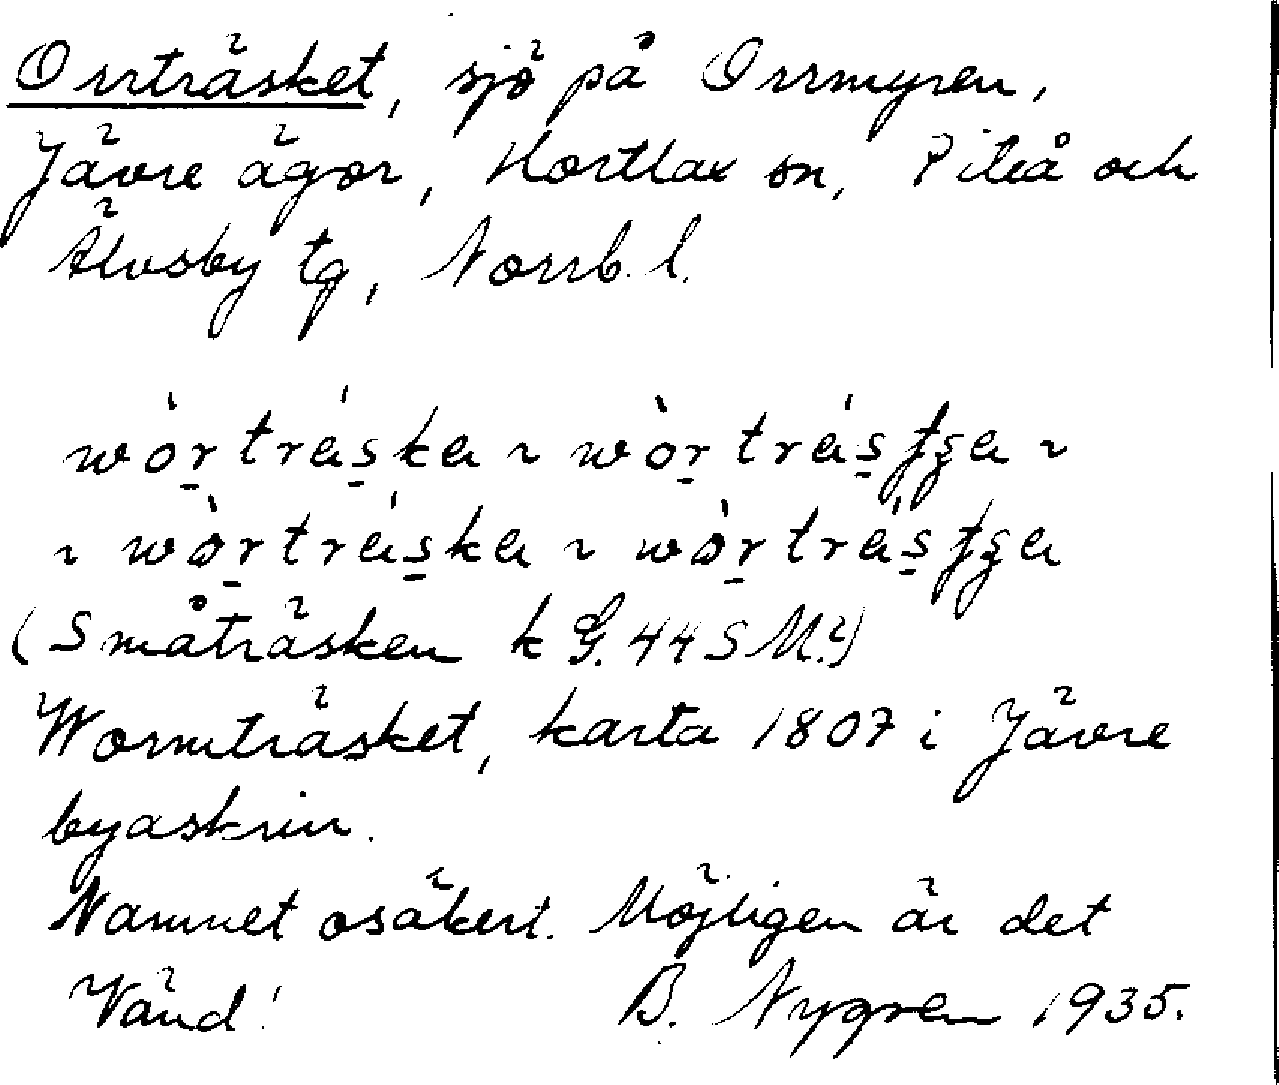 Orrträsket, sjö på Orrmyren,
Jävre ägor, Hortlax sn, Piteå och
Älvsby tg, Norrb. l.
wòrträ́ska ~ wòrträ́sʈʂa ~
~ wòrträ́ska ~ wòrträ́sʈʂa
(Småträsken k G. 44 S M.?)
Wormträsket, karta 1807 i Jävre
byaskrin.
Namnet osäkert. Möjligen är det
Vänd! B. Nygren 1935.